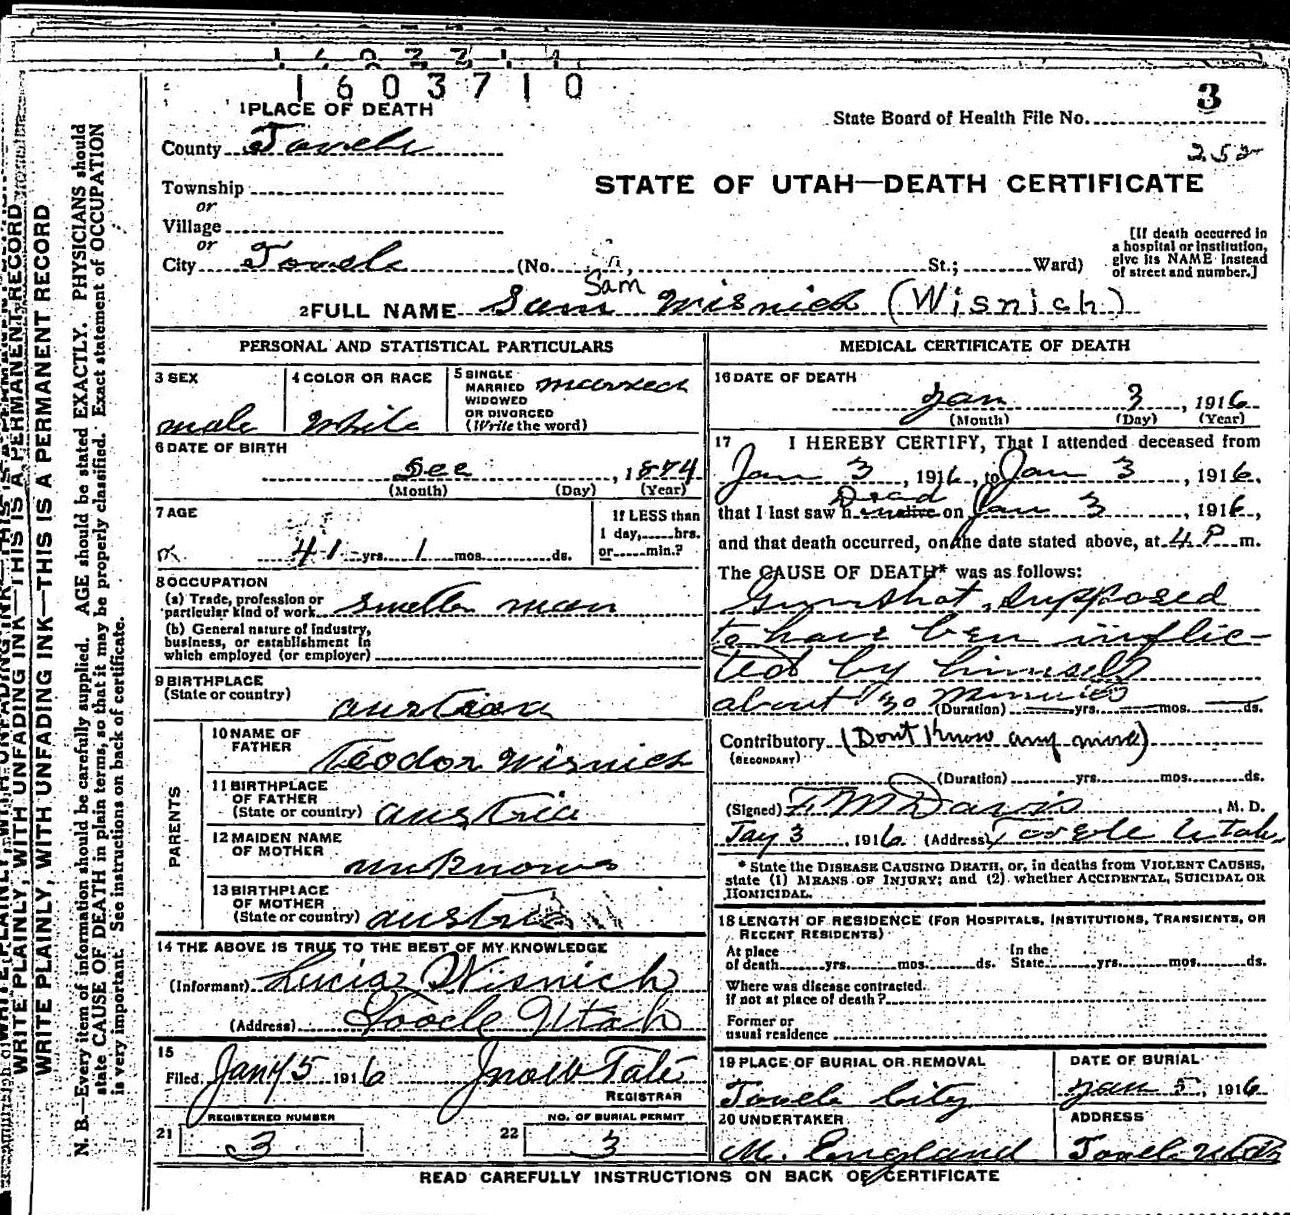 1603710
1 PLACE OF DEATH
3
State Board of Health File No.
County Tooele
252
Township
STATE OF UTAH—DEATH CERTIFICATE
or
Village
or
[If death occurred in
a hospital or institution,
give its NAME instead
of street and number.]
City Tooele (No. St.; Ward)
Sam
2 FULL NAME Sam Wisnich (Wisnich)
PERSONAL AND STATISTICAL PARTICULARS
3 SEX
male
4 COLOR OR RACE
White
5 SINGLE
MARRIED
WIDOWED
OR DIVORCED
(Write the word)
married
6 DATE OF BIRTH
Dec , 1874
(Month) (Day) (Year)
7 AGE
41 yrs. 1 mos. ds.
If LESS than
1 day, hrs.
or min.?
8 OCCUPATION
(a) Trade, profession or
particular kind of work smelter man
(b) General nature of industry,
business, or establishment in
which employed (or employer)
9 BIRTHPLACE
(State or country)
PARENTS
10 NAME OF
FATHER
Teodor Wisnich
11 BIRTHPLACE
OF FATHER
(State or country) austria
12 MAIDEN NAME
OF MOTHER
unknown
13 BIRTHPLACE
OF MOTHER
(State or country) austria
14 THE ABOVE IS TRUE TO THE BEST OF MY KNOWLEDGE
(Informant) Wisnich
(Address) Tooele Utah
15
Filed Jany 5 1916 Jno W Tate
REGISTRAR
REGISTERED NUMBER
21 3
NO. OF BURIAL PERMIT
22 3
MEDICAL CERTIFICATE OF DEATH
16 DATE OF DEATH
Jan 3, 1916
(Month) (Day) (Year)
17 I HEREBY CERTIFY, That I attended deceased from
Jan 3, 1916, to Jan 3, 1916,
Dead
that I last saw h alive on Jan 3, 1916,
and that death occurred, on the date stated above, at 4 P m.
The CAUSE OF DEATH* was as follows:
Gunshot, supposed
to have ben inflic-
ted by himself
about 30 Minuies
(Duration) yrs. mos. ds.
Contributory (Dont Know any more)
(SECONDARY)
(Duration) yrs. mos. ds.
(Signed) F M Davis, M. D.
Jay 3, 1916 (Address) Tooele Utah
* State the DISEASE CAUSING DEATH, or, in deaths from VIOLENT CAUSES,
state (1) MEANS OF INJURY; and (2) whether ACCIDENTAL, SUICIDAL OR
HOMICIDAL.
18 LENGTH OF RESIDENCE (FOR HOSPITALS, INSTITUTIONS, TRANSIENTS, OR
RECENT RESIDENTS)
At place In the
of death yrs. mos. ds. State yrs. mos. ds.
Where was disease contracted.
if not at place of death?
Former or
usual residence
19 PLACE OF BURIAL OR REMOVAL
Tooele City
DATE OF BURIAL
Jan 5, 1916
20 UNDERTAKER
M. England
ADDRESS
Tooele Utah
READ CAREFULLY INSTRUCTIONS ON BACK OF CERTIFICATE
WRITE PLAINLY, WITH UNFADING INK—THIS IS A PERMANENT RECORD
WRITE PLAINLY, WITH UNFADING INK—THIS IS A PERMANENT RECORD
N. B.—Every item of information should be carefully supplied. AGE should be stated EXACTLY. PHYSICIANS should
state CAUSE OF DEATH in plain terms, so that it may be properly classified. Exact statement of OCCUPATION
is very important. See instructions on back of certificate.